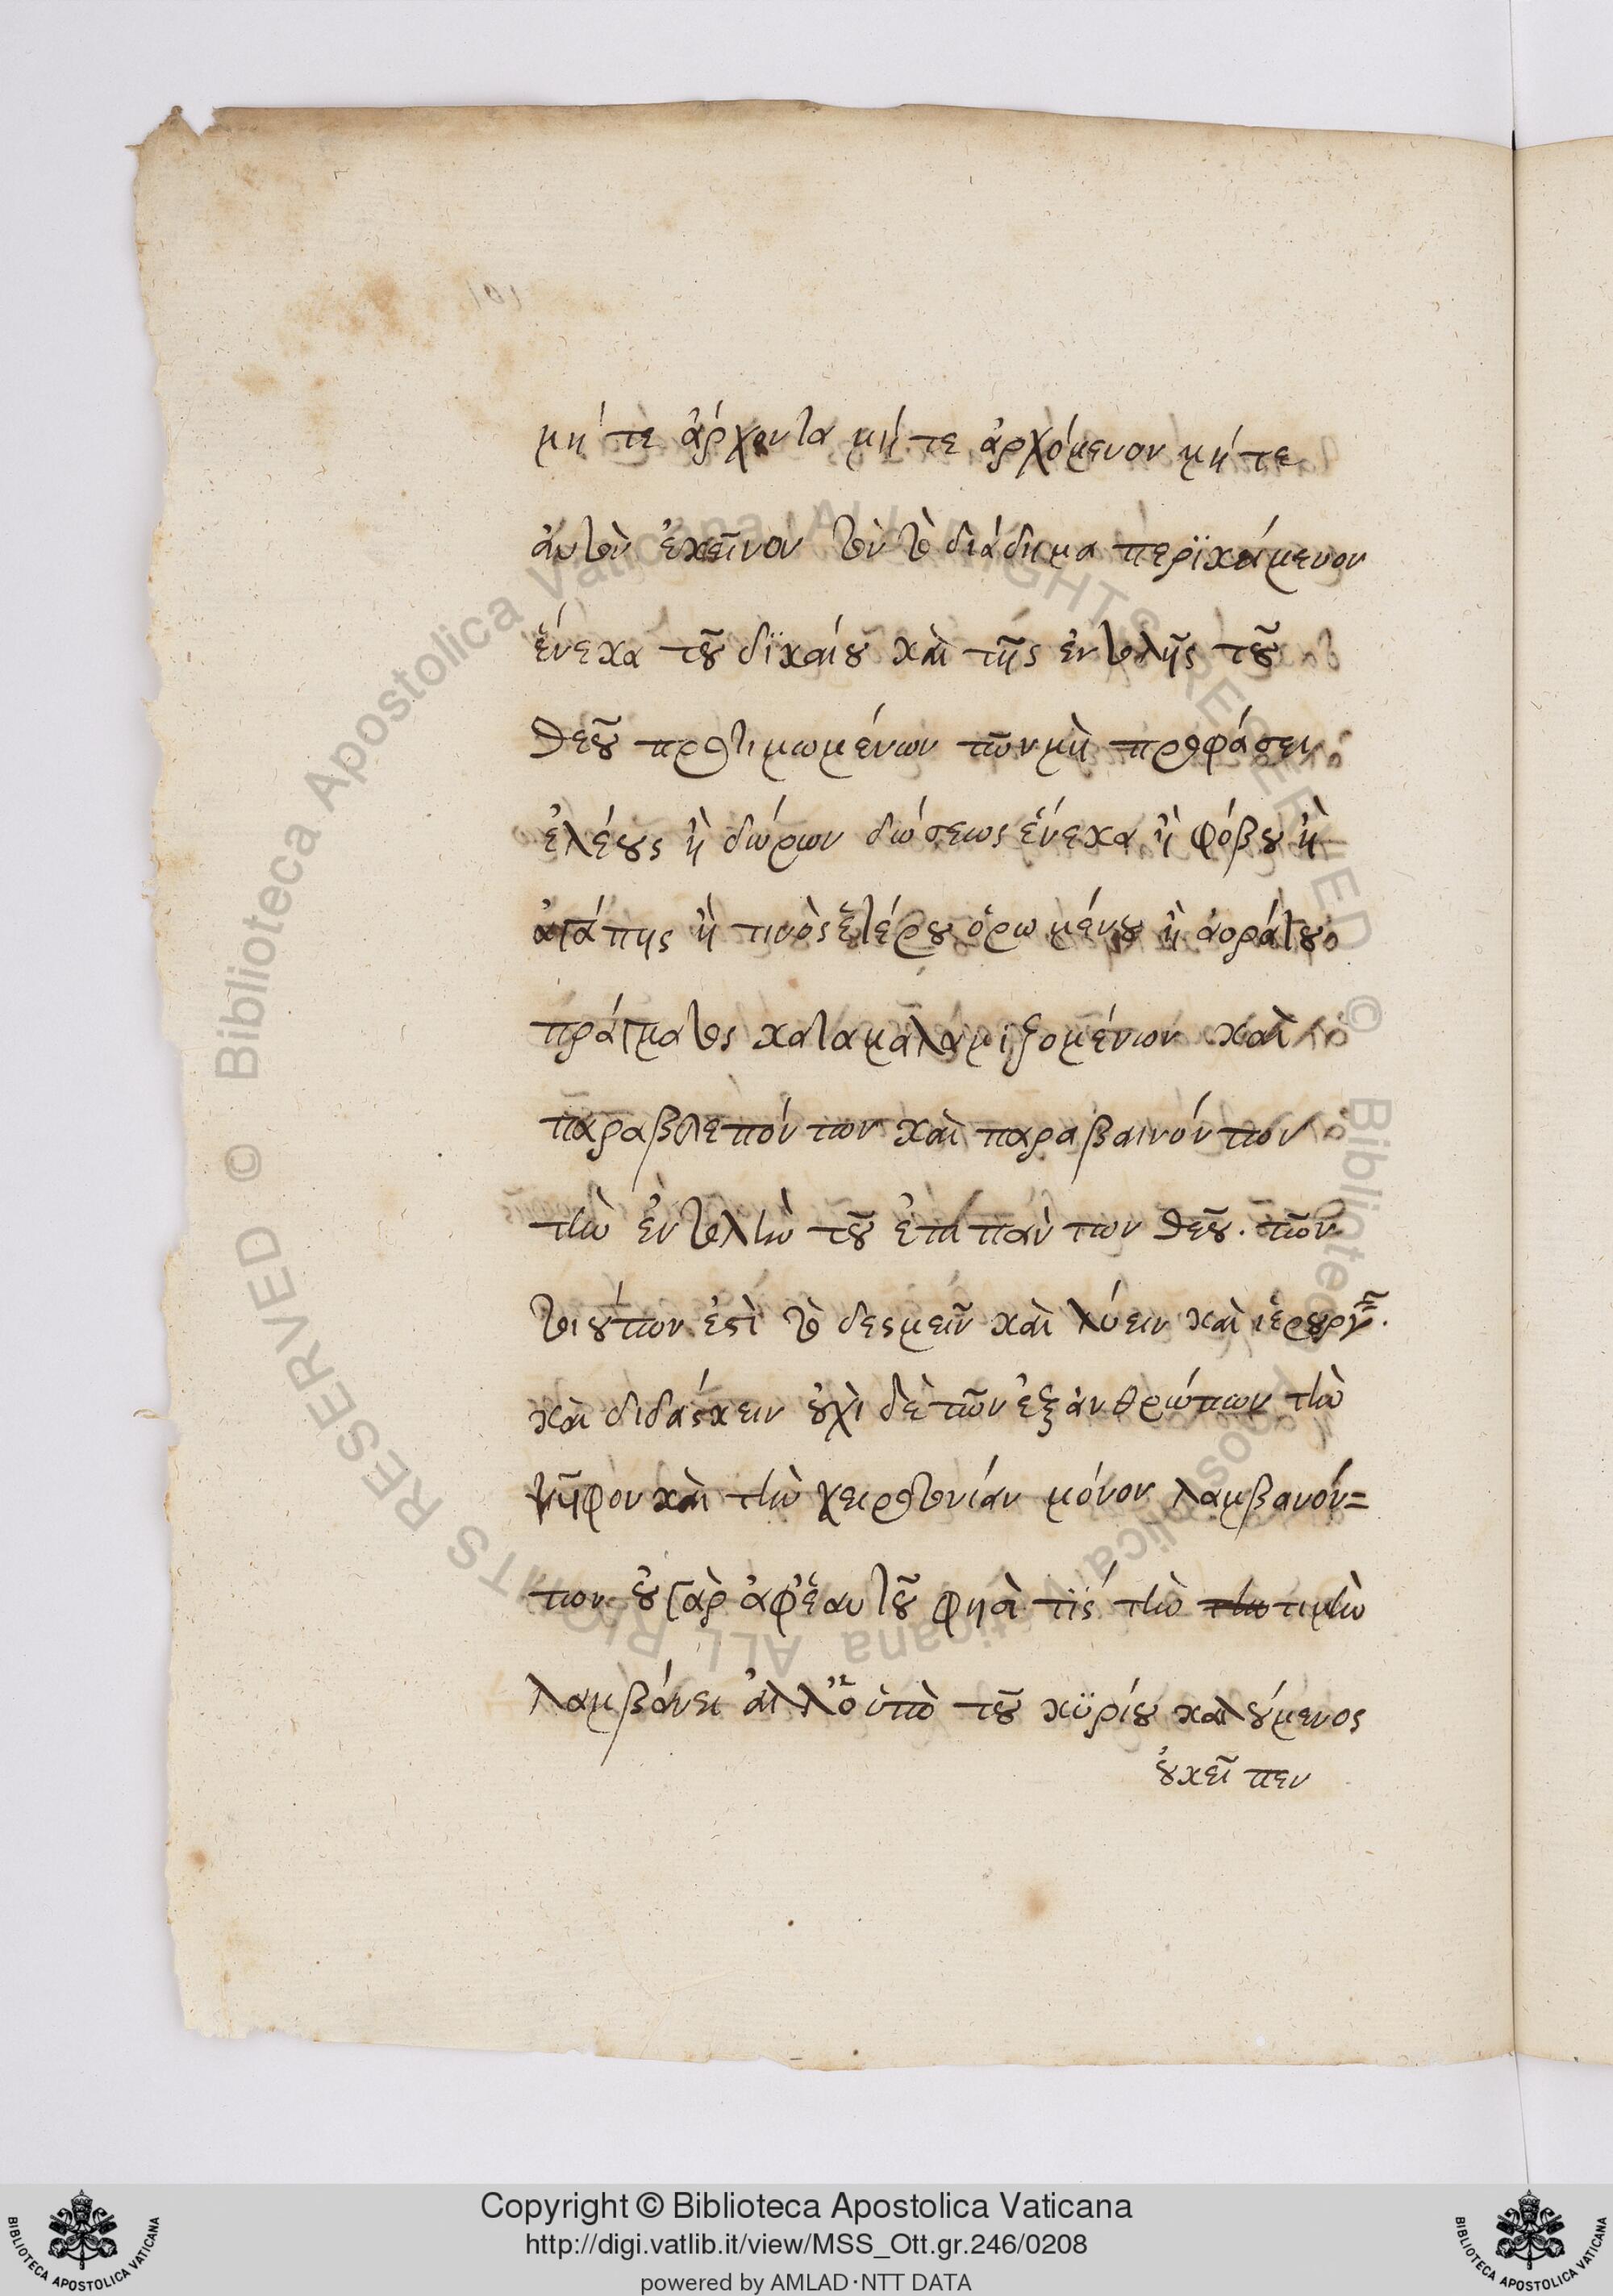 μήτε ἄρχοντα μήτε ἀρχόμενον μήτε
ἀυτὸν ἐκεῖνον τὸν τὸ διάδημα περϊκείμενον
ἕνεκα τοῦ δϊκαίου καὶ τῆς ἐντολῆς τοῦ
θεοῦ προτιμωμένων τῶν μὴ προφάσει
ἐλέους ἢ δώρων δώσεως ἕνεκα ἢ φόβου ἢ
ἀγάπης ἢ τινὸς ἑτέρου ὁρωμένου ἢ ἀοράτου
πράγματος καταμαλαμιζομένων καὶ
παραβλεπόντων καὶ παραβαινόντων
τὴν ἐντολὴν τοῦ ἐπὶ πάντων θεοῦ. τῶν
τοιούτων ἐστὶ τὸ δεσμεῖν καὶ λύειν καὶ ἱερουργεῖν.
καὶ διδάσκειν οὐχὶ δὲ τῶν ἐξ ἀνθρώπων τὴν
ψῆφον καὶ τὴν χειροτονίαν μόνον λαμβανόν=
των οὐ γὰρ ἀφ' ἑαυτοῦ φησὶ τϊς τὴν τιμὴν
λαμβάνει ἀλλ' ὁ ὑπὸ τοῦ κϋρίου καλούμενος
οὐκ εἶπεν
Copyright © Biblioteca Apostolica Vaticana
http://digi.vatlib.it/view/MSS_Ott.gr.246/0208
powered by AMLAD·NTT DATA
BIBLIOTECA APOSTOLICA VATICANA
BIBLIOTECA APOSTOLICA VATICANA
© Biblioteca Apostolica Vaticana ALL RIGHTS RESERVED © Biblioteca Apostolica Vaticana ALL RIGHTS RESERVED